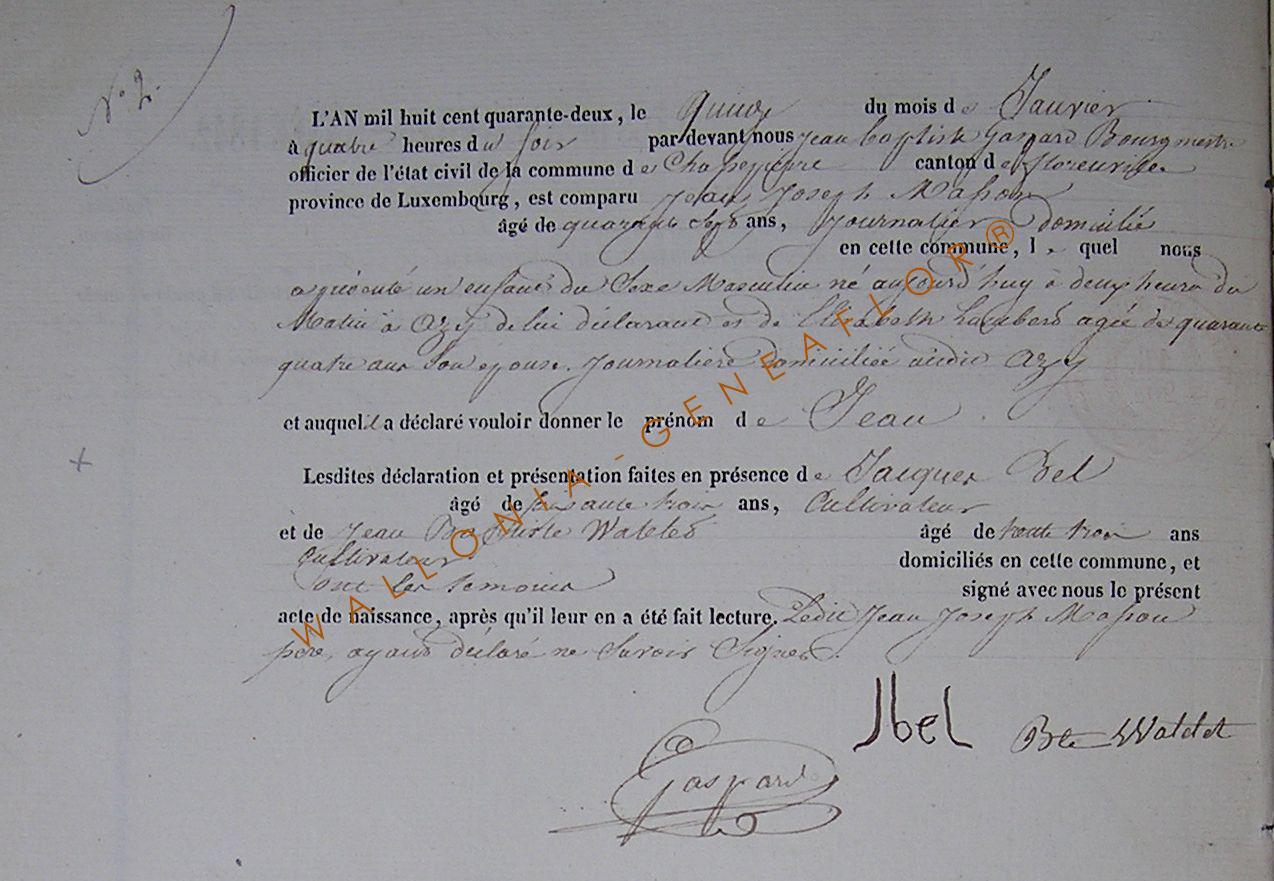 N° 2.
L'AN mil huit cent quarante-deux, le quinze du mois de Janvier
à quatre heures du soir par-devant nous Jean Baptiste Gaspard Bourgmestre
officier de l'état civil de la commune de Chassepierre canton de florenville
province de Luxembourg, est comparu Jean Joseph Masson
âgé de quarante sept ans, Journalier domicilié
en cette commune, le quel nous
a présenté un enfant du Sexe Masculin né aujourd'huy à deux heures du
Matin à Azy de lui déclarant et de Elisabeth Lambert agée de quarante
quatre ans Son épouse. Journalière domiciliée audit Azy
et auquel il a déclaré vouloir donner le prénom de Jean.
Lesdites déclaration et présentation faites en présence de Jacques Bel
âgé de ans, Cultivateur
et de Jean Baptiste Watelet âgé de trente trois ans
Cultivateur domiciliés en cette commune, et
ont les temoins signé avec nous le présent
acte de naissance, après qu'il leur en a été fait lecture. Ledit Jean Joseph Masson
père, ayant déclaré ne Savoir Signer.
Jbel Bte Watelet
Gaspard
WALLONIA-GENEAFLOR®